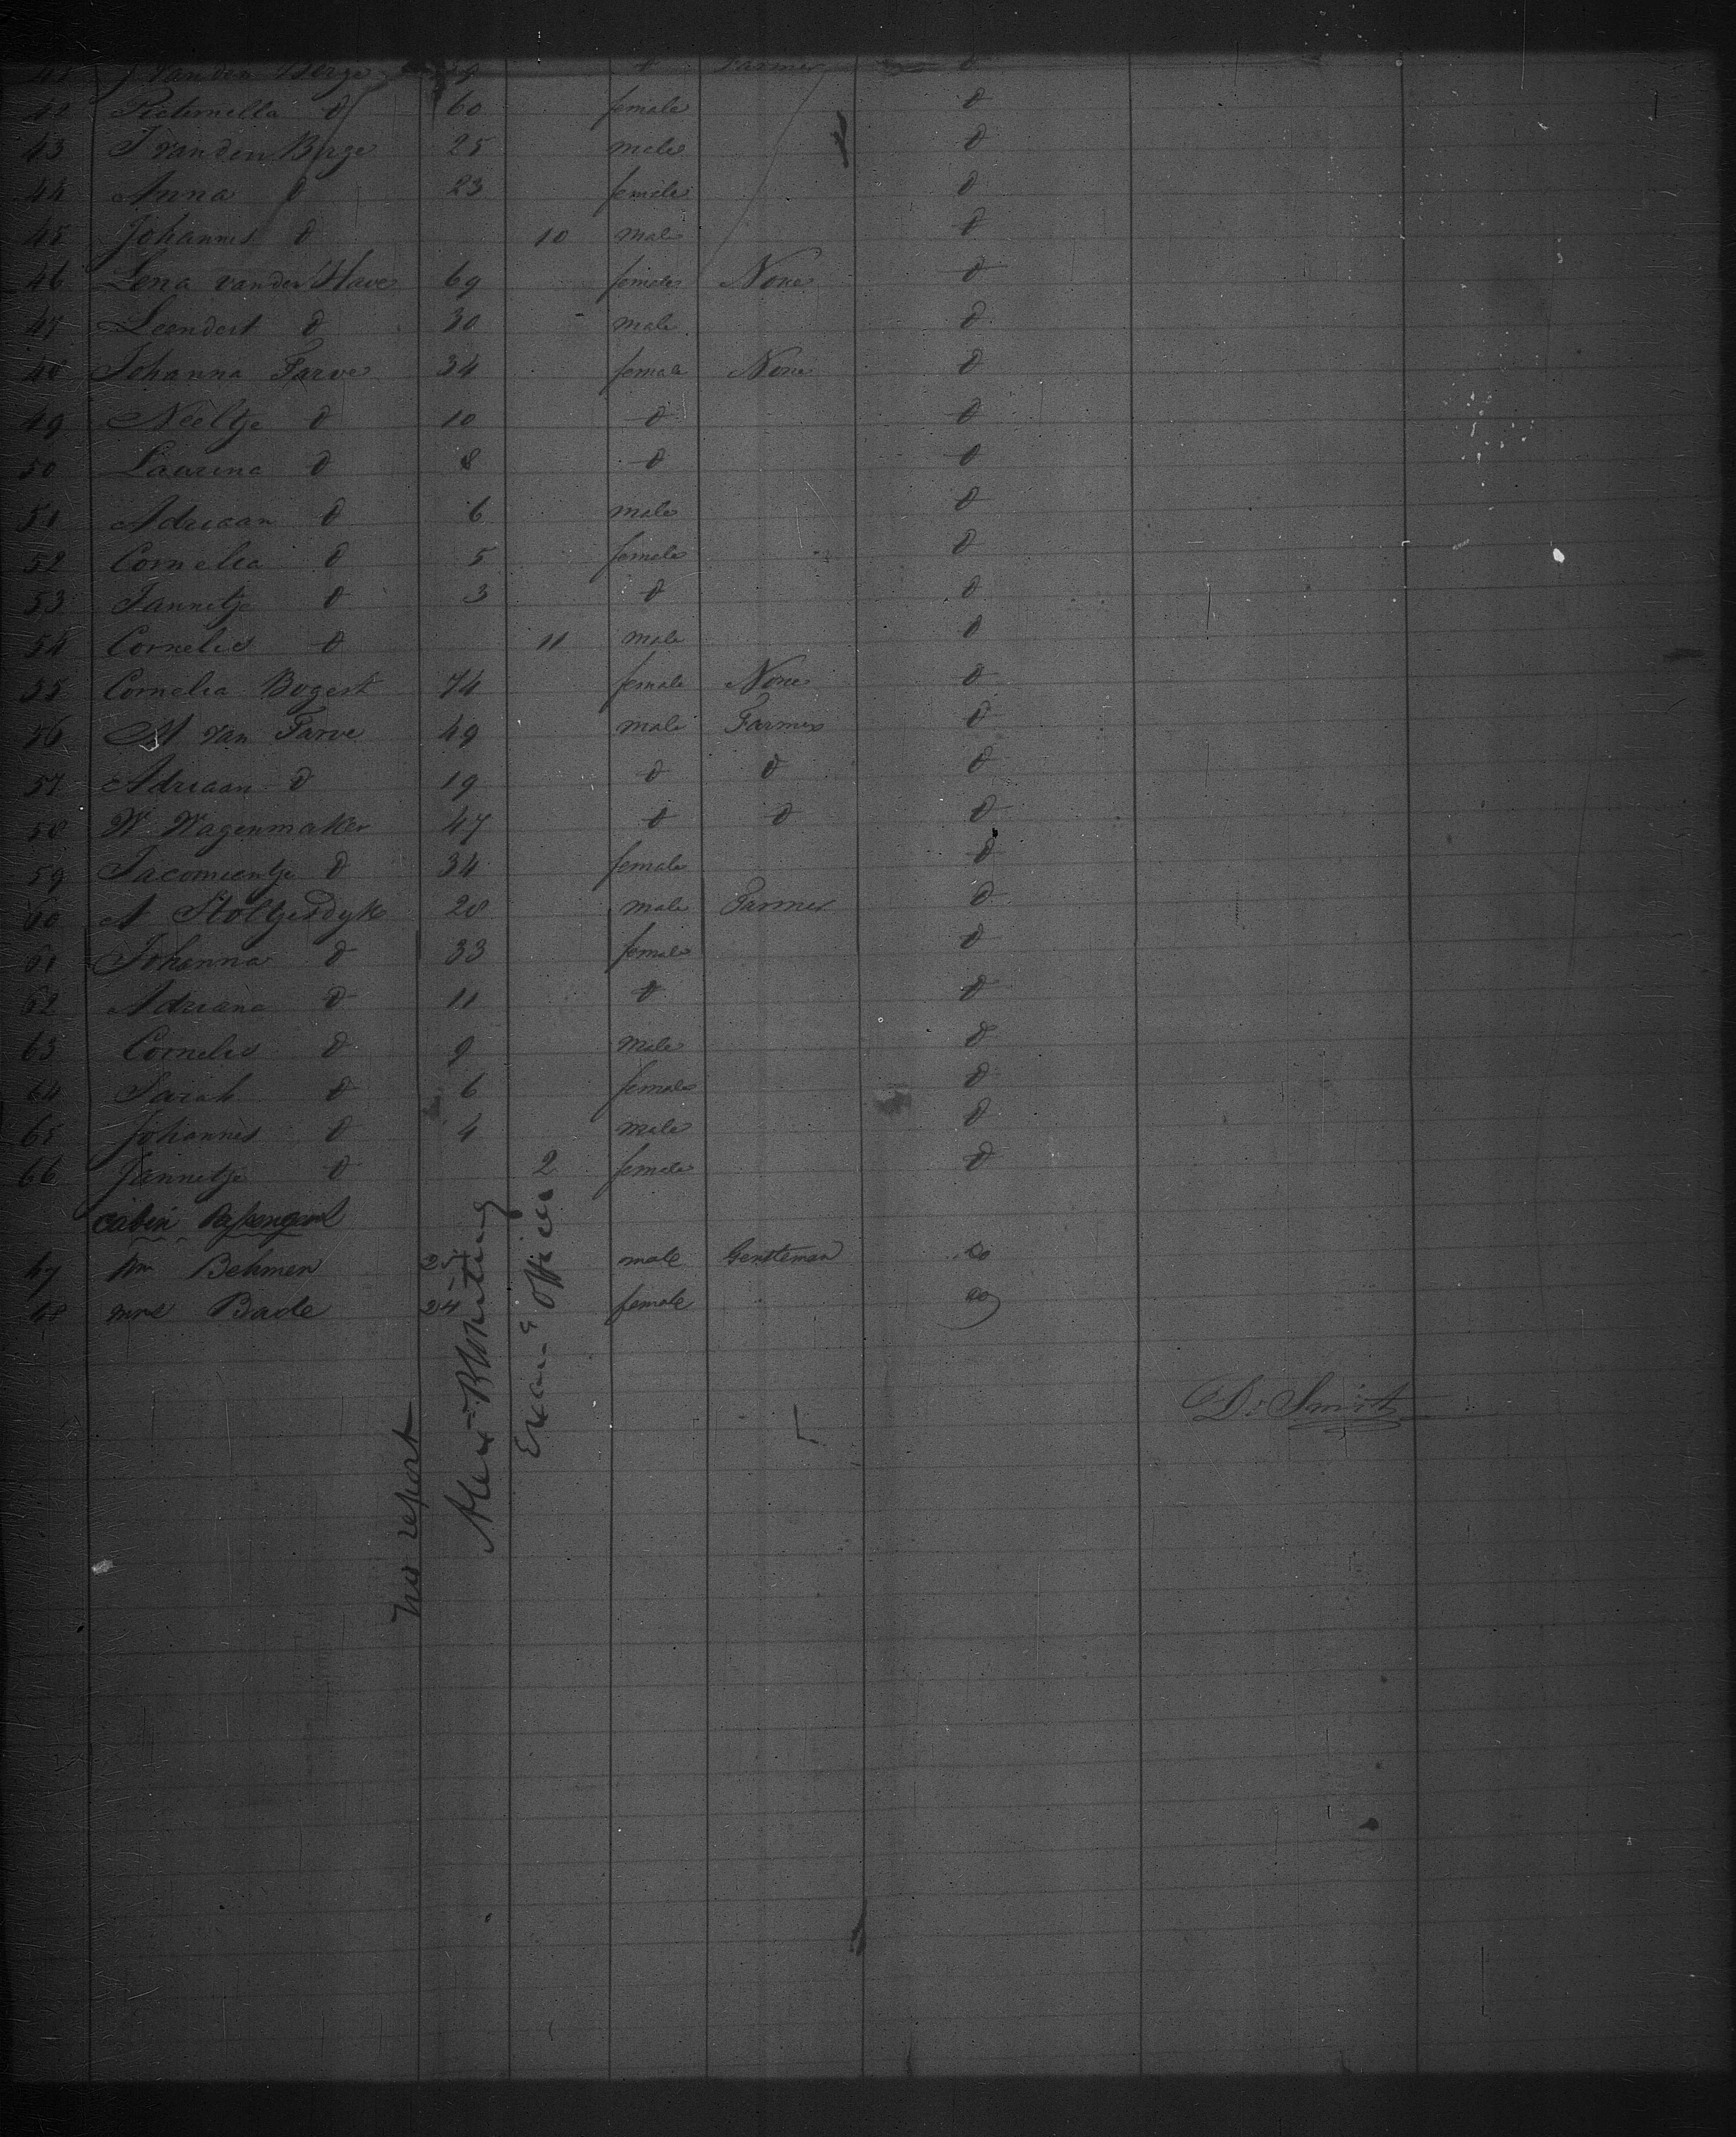 J van den Berge Farmer
42 Pieternella d 60 female d
43 J van den Berge 25 male d
44 Anna d 23 female d
45 Johannis d 10 male d
46 Lena van der Have 69 female None d
47 Leendert d 30 male d
48 Johanna Farve 34 female None d
49 Neeltje d 10 d d
50 Laurina d 8 d d
51 Adriaan d 6 male d
52 Cornelia d 5 female d
53 Jannetje d 3 d d
54 Cornelis d 11 male d
55 Cornelia Bogert 74 female None d
56 M van Farve 49 male Farmer d
57 Adriaan d 19 d d d
58 W Wagenmaker 47 d d d
59 Jacomientje d 34 female d
60 A Stoltjesdyk 28 male Farmer d
61 Johanna d 33 female d
62 Adriana d 11 d d
63 Cornelis d 9 male d
64 Sarah d 6 female d
65 Johannes d 4 male d
66 Jannetje d 2 female d
cabin Passengers
67 Wm Behmen 25 male Gentleman do
68 mrs Bade 24 female do
D. Smit
no report